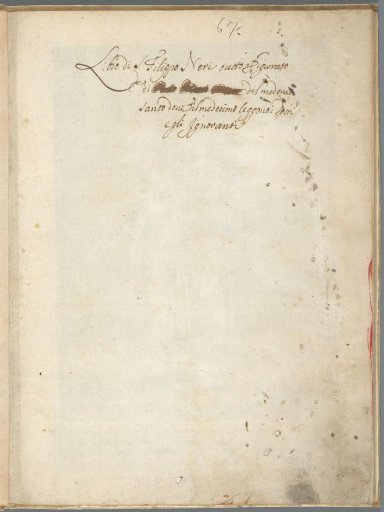 67.
Libro di S. Filippo Neri tutto figurato
di del medemo
santo doue il medesimo leggono i dotti
e gli Ignoranti